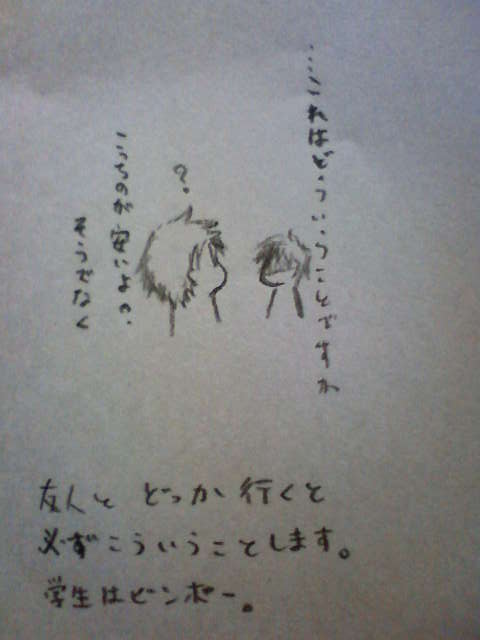 …これはどういうことですか
?
こっちのが安いよ?
そうでなく
友人と どっか 行くと
必ずこういうことします。
学生はビンボー。